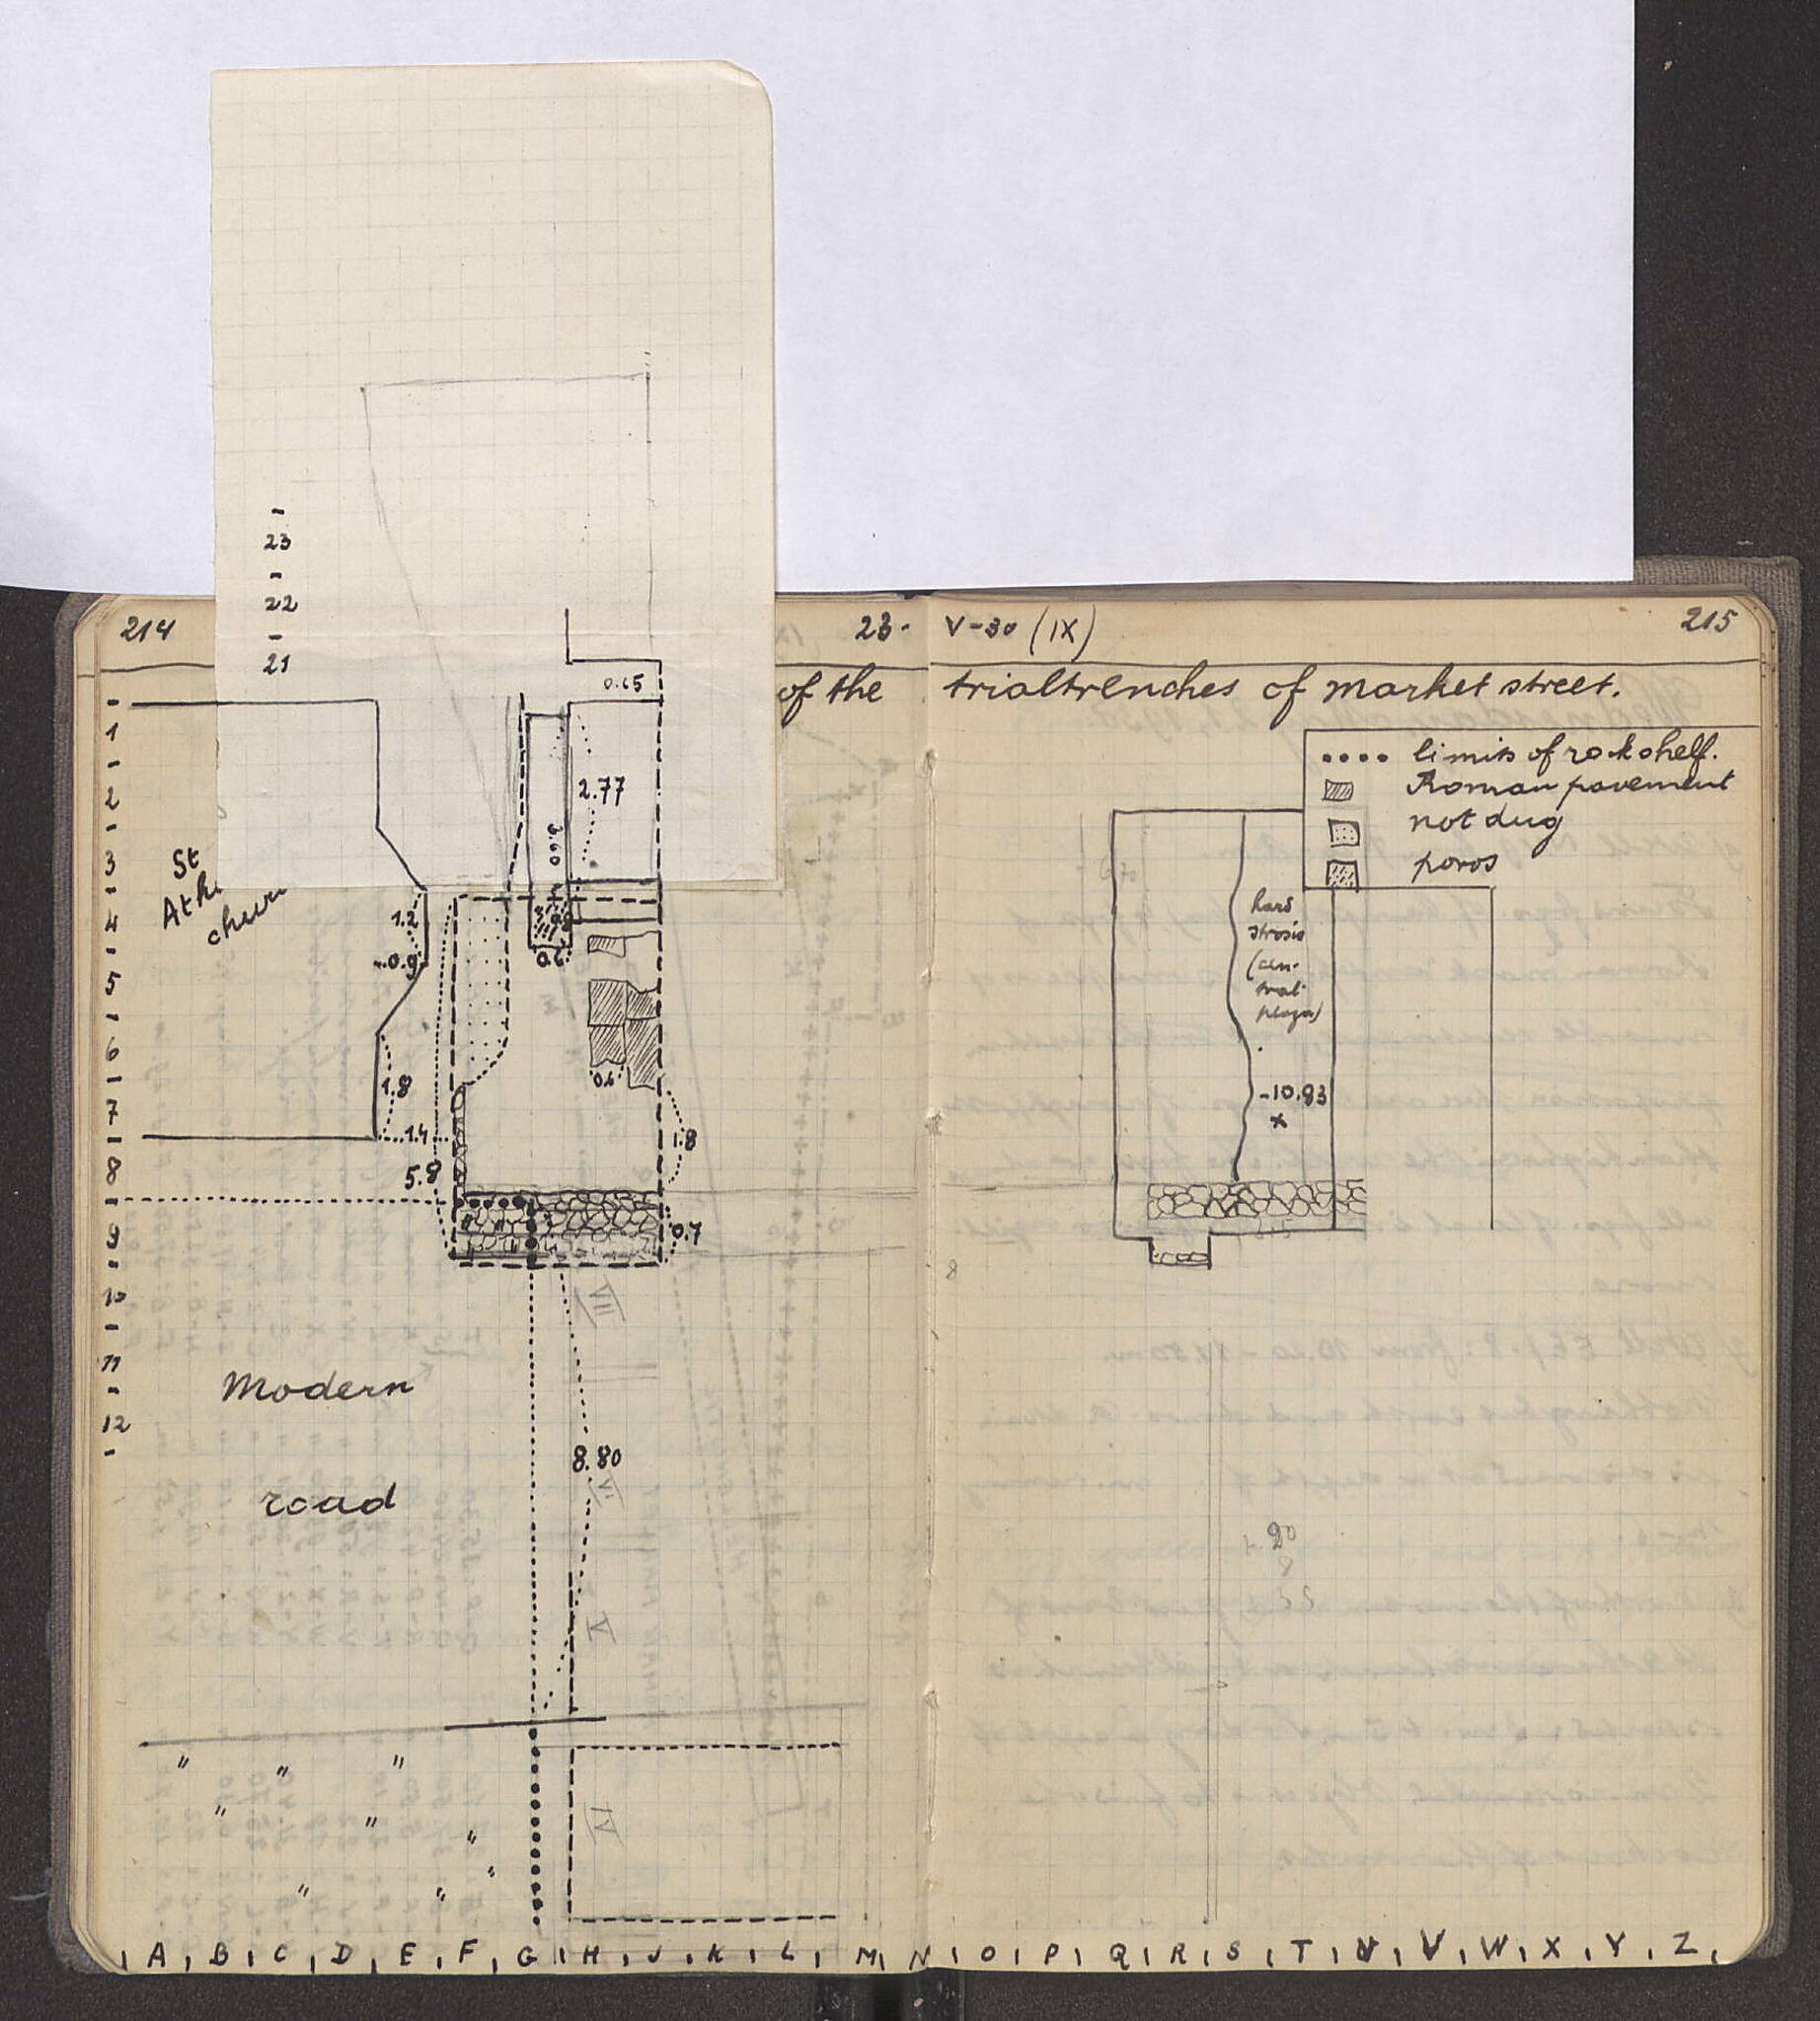 23
22
21
0.65
214
23-
V-30 (IX)
215
of the trialtrenches of market street.
.... limits of rock shelf.
Roman pavement
not dug
poros
1
2
3
4
5
6
7
8
9
10
11
12
2.77
3.60
St
1.2
0.9
0.6
hard
strosis
(cen-
tral
plaza)
0.6
1.8
-10.83
x
1.4
1.8
5.8
0.7
VII
Modern
road
8.80
VI
V
IV
" " "
" " "
"
" "
A B C D E F G H J K L M N O P Q R S T U V W X Y Z